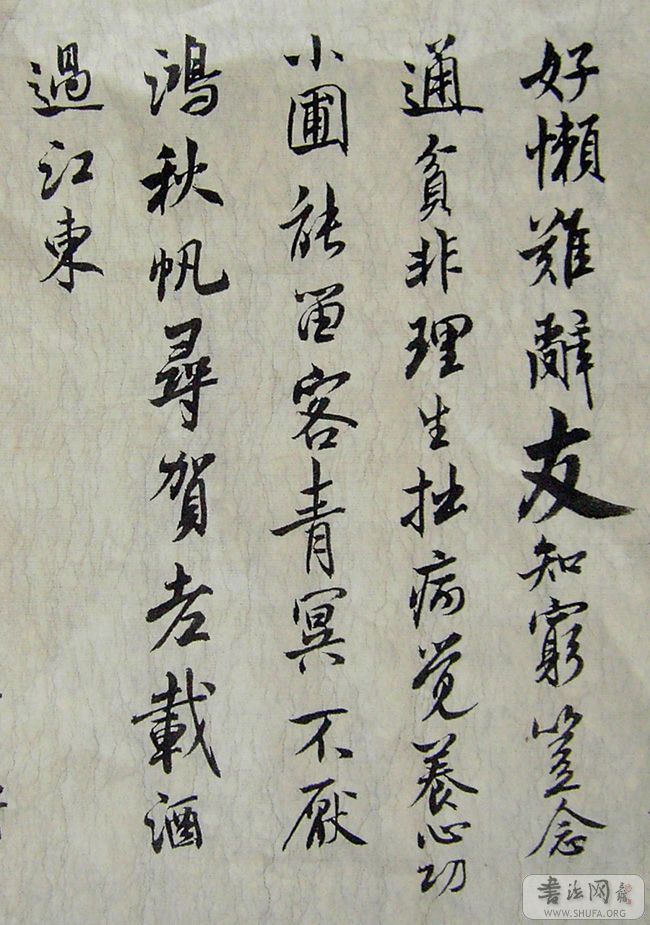 好懶難辭友知窮豈念
通貧非理生拙病覺養心功
小圃能留客青冥不厭
鴻秋帆尋賀老載酒
過江東
書法网
WWW.SHUFA.ORG